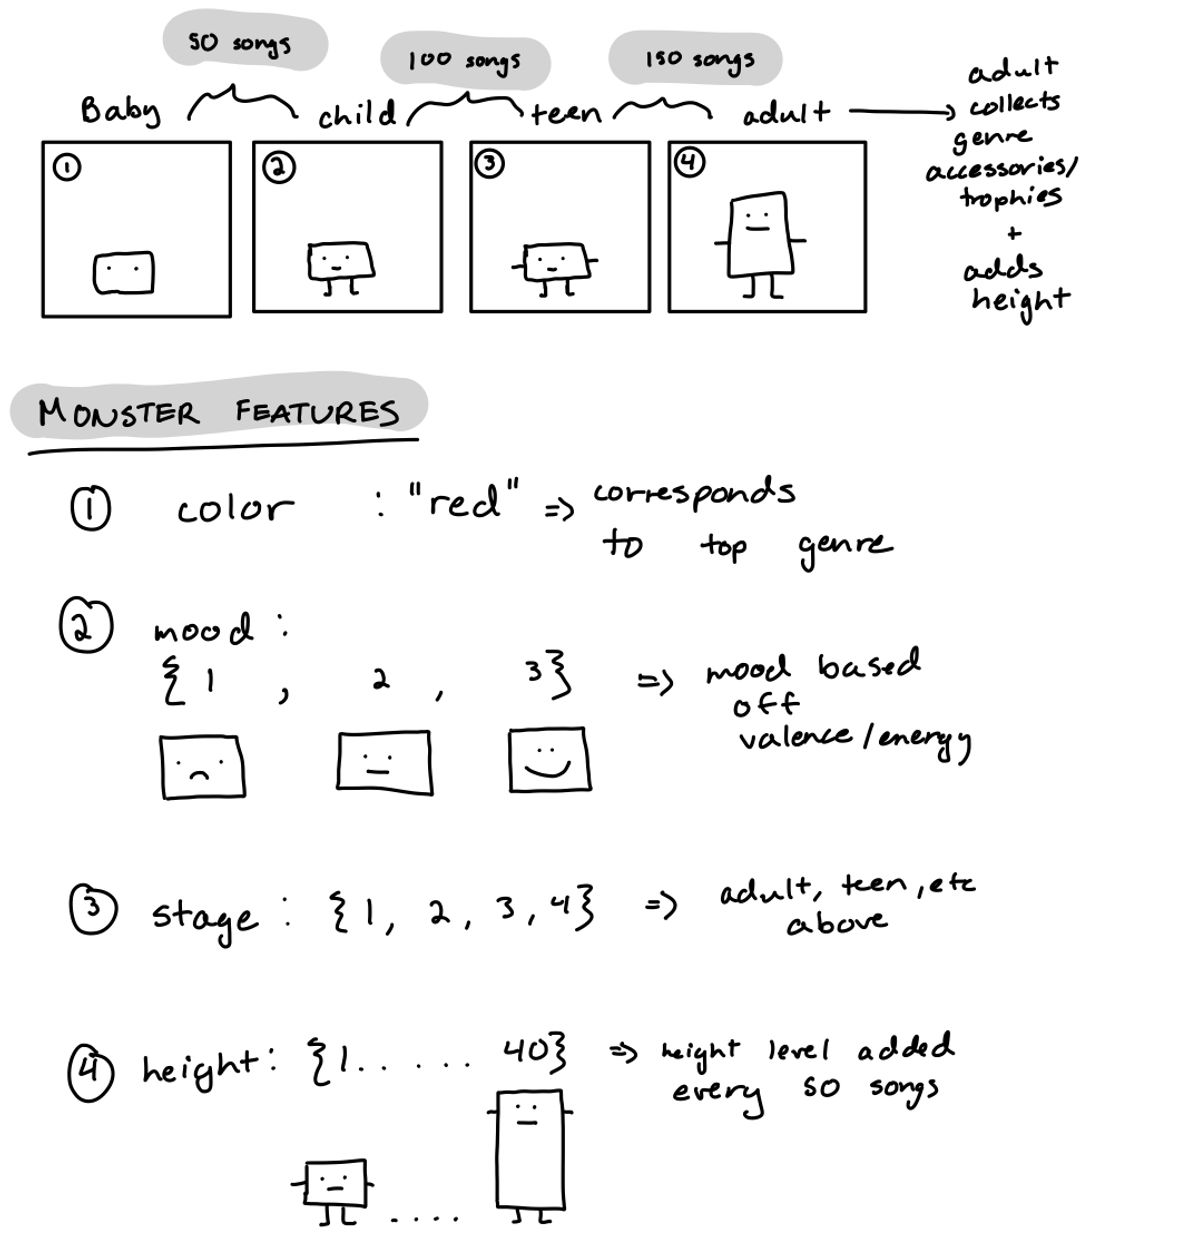 50 songs
100 songs
150 songs
Baby child teen adult → adult
collects
genre
accessories/
trophies
+
adds
height
① ② ③ ④
MONSTER FEATURES
① color : "red" => corresponds
to top genre
② mood :
{1 , 2 , 3} => mood based
off
valence/energy
③ stage : {1, 2, 3, 4} => adult, teen, etc
above
④ height: {1. . . . . 40} => height level added
every 50 songs
. . . .